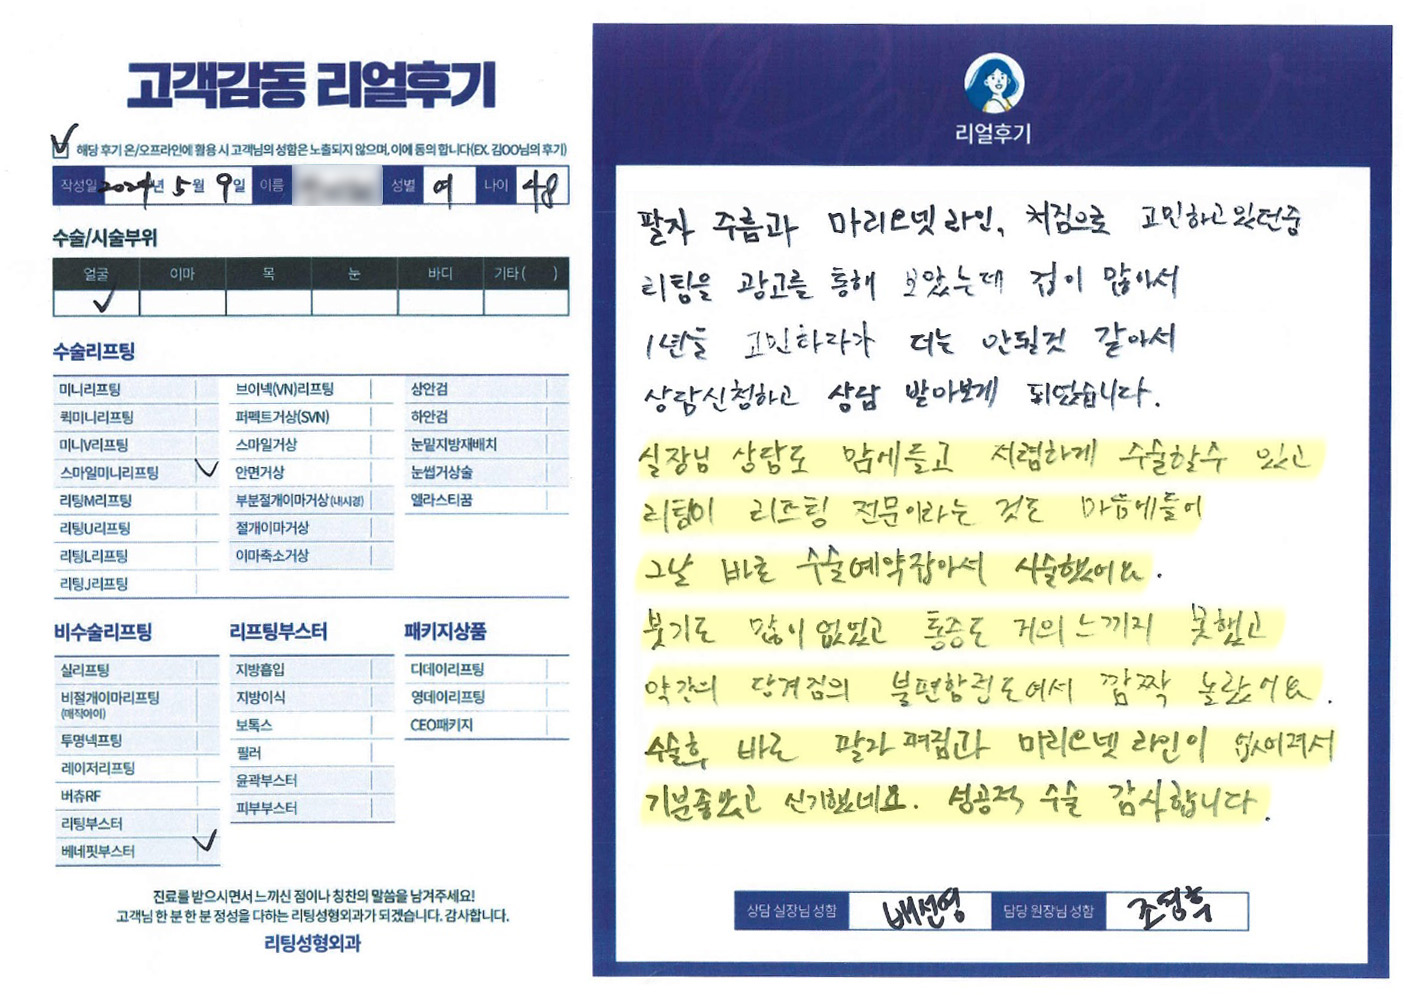 고객감동 리얼후기
해당 후기 온/오프라인에 활용 시 고객님의 성함은 노출되지 않으며, 이에 동의 합니다(EX. 김OO님의 후기)
작성일 2024년 5월 9일 이름 성별 여 나이 48
수술/시술부위
얼굴 이마 목 눈 바디 기타 ( )
수술리프팅
미니리프팅 브이넥(VN)리프팅 상안검
퀵미니리프팅 퍼펙트거상(SVN) 하안검
미니V리프팅 스마일거상 눈밑지방재배치
스마일미니리프팅 안면거상 눈썹거상술
리팅M리프팅 부분절개이마거상(내시경) 엘라스티꿈
리팅U리프팅 절개이마거상
리팅L리프팅 이마축소거상
리팅J리프팅
비수술리프팅 리프팅부스터 패키지상품
실리프팅 지방흡입 디데이리프팅
비절개이마리프팅 지방이식 영데이리프팅
(매직아이) 보톡스 CEO패키지
투명넥프팅 필러
레이저리프팅 윤곽부스터
버츄RF 피부부스터
리팅부스터
베네핏부스터
진료를 받으시면서 느끼신 점이나 칭찬의 말씀을 남겨주세요!
고객님 한 분 한 분 정성을 다하는 리팅성형외과가 되겠습니다. 감사합니다.
리팅성형외과
리얼후기
팔자 주름과 마리오넷 라인, 처짐으로 고민하고있던중
리팅을 광고를 통해 보았는데 겁이 많아서
1년을 고민하다가 더는 안될것 같아서
상담신청하고 상담 받아보게 되었습니다.
실장님 상담도 맘에들고 저렴하게 수술할수 있고
리팅이 리프팅 전문이라는 것도 마음에들어
그날 바로 수술예약잡아서 시술했어요.
붓기도 많이없었고 통증도 거의느끼지 못했고
약간의 당겨짐의 불편함정도여서 깜짝 놀랐어요.
수술후 바로 팔자 펴짐과 마리오넷 라인이 없어져서
기분좋았고 신기했네요. 성공적 수술 감사합니다.
상담 실장님 성함 배선영 담당 원장님 성함 조정후